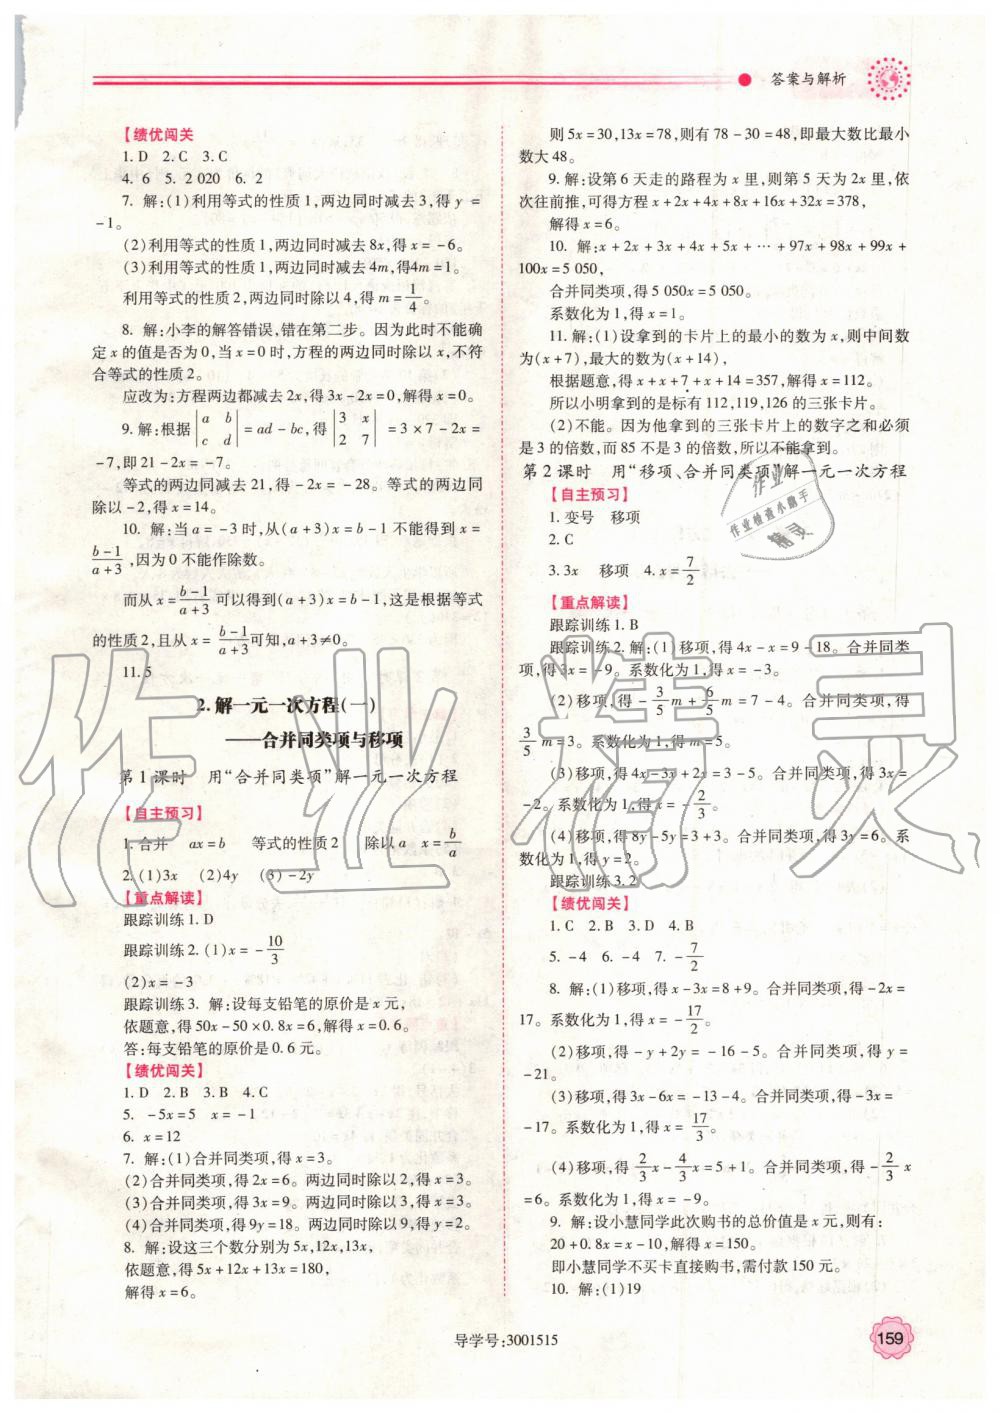 答案与解析
【绩优闯关】
1. D 2. C 3. C
4. 6 5. 2 020 6. 2
7. 解:(1)利用等式的性质1,两边同时减去3,得 y =
-1。
(2)利用等式的性质1,两边同时减去8x,得 x = -6。
(3)利用等式的性质1,两边同时减去4m,得4m=1。
利用等式的性质2,两边同时除以4,得 m = 1/4。
8. 解:小李的解答错误,错在第二步。因为此时不能确
定 x 的值是否为0,当 x=0时,方程的两边同时除以 x,不符
合等式的性质2。
应改为:方程两边都减去2x,得3x-2x=0,解得 x=0。
9. 解:根据 |a b; c d| = ad - bc,得 |3 x; 2 7| = 3×7-2x=
-7,即21-2x=-7。
等式的两边同时减去21,得-2x=-28。等式的两边同
除以-2,得 x=14。
10. 解:当 a=-3时,从(a+3)x=b-1不能得到 x=
(b-1)/(a+3),因为0不能作除数。
而从 x=(b-1)/(a+3)可以得到(a+3)x=b-1,这是根据等式
的性质2,且从 x=(b-1)/(a+3)可知,a+3≠0。
11. 5
2. 解一元一次方程(一)
——合并同类项与移项
第1课时 用“合并同类项”解一元一次方程
【自主预习】
1. 合并 ax=b 等式的性质2 除以a x=b/a
2. (1)3x (2)4y (3)-2y
【重点解读】
跟踪训练1. D
跟踪训练2. (1)x=-10/3
(2)x=-3
跟踪训练3. 解:设每支铅笔的原价是 x 元,
依题意,得50x-50×0.8x=6,解得 x=0.6。
答:每支铅笔的原价是0.6元。
【绩优闯关】
1. D 2. B 3. B 4. C
5. -5x=5 x=-1
6. x=12
7. 解:(1)合并同类项,得 x=3。
(2)合并同类项,得2x=6。两边同时除以2,得 x=3。
(3)合并同类项,得3x=9。两边同时除以3,得 x=3。
(4)合并同类项,得9y=18。两边同时除以9,得 y=2。
8. 解:设这三个数分别为5x,12x,13x,
依题意,得5x+12x+13x=180,
解得 x=6。
则5x=30,13x=78,则有78-30=48,即最大数比最小
数大48。
9. 解:设第6天走的路程为 x 里,则第5天为2x里,依
次往前推,可得方程 x+2x+4x+8x+16x+32x=378,
解得 x=6。
10. 解:x+2x+3x+4x+5x+…+97x+98x+99x+
100x=5 050,
合并同类项,得5 050x=5 050。
系数化为1,得 x=1。
11. 解:(1)设拿到的卡片上的最小的数为 x,则中间数
为(x+7),最大的数为(x+14),
根据题意,得 x+x+7+x+14=357,解得 x=112。
所以小明拿到的是标有112,119,126的三张卡片。
(2)不能。因为他拿到的三张卡片上的数字之和必须
是3的倍数,而85不是3的倍数,所以不能拿到。
第2课时 用“移项、合并同类项”解一元一次方程
【自主预习】
1. 变号 移项
2. C
3. 3x 移项 4. x=7/2
【重点解读】
跟踪训练1. B
跟踪训练2. 解:(1)移项,得4x-x=9-18。合并同类
项,得3x=-9。系数化为1,得 x=-3。
(2)移项,得-3/5m+6/5m=7-4。合并同类项,得
3/5m=3。系数化为1,得 m=5。
(3)移项,得4x-3x+2x=3-5。合并同类项,得3x=
-2。系数化为1,得 x=-2/3。
(4)移项,得8y-5y=3+3。合并同类项,得3y=6。系
数化为1,得 y=2。
跟踪训练3. 2
【绩优闯关】
1. C 2. B 3. D 4. B
5. -4 6. -4 7. -7/2
8. 解:(1)移项,得 x-3x=8+9。合并同类项,得-2x=
17。系数化为1,得 x=-17/2。
(2)移项,得-y+2y=-16-5。合并同类项,得 y=
-21。
(3)移项,得3x-6x=-13-4。合并同类项,得-3x=
-17。系数化为1,得 x=17/3。
(4)移项,得2/3x-4/3x=5+1。合并同类项,得-2/3x
=6。系数化为1,得 x=-9。
9. 解:设小慧同学此次购书的总价值是 x 元,则有:
20+0.8x=x-10,解得 x=150。
即小慧同学不买卡直接购书,需付款150元。
10. 解:(1)19
作业精灵
作业
作业检查小助手
精灵
导学号:3001515
159